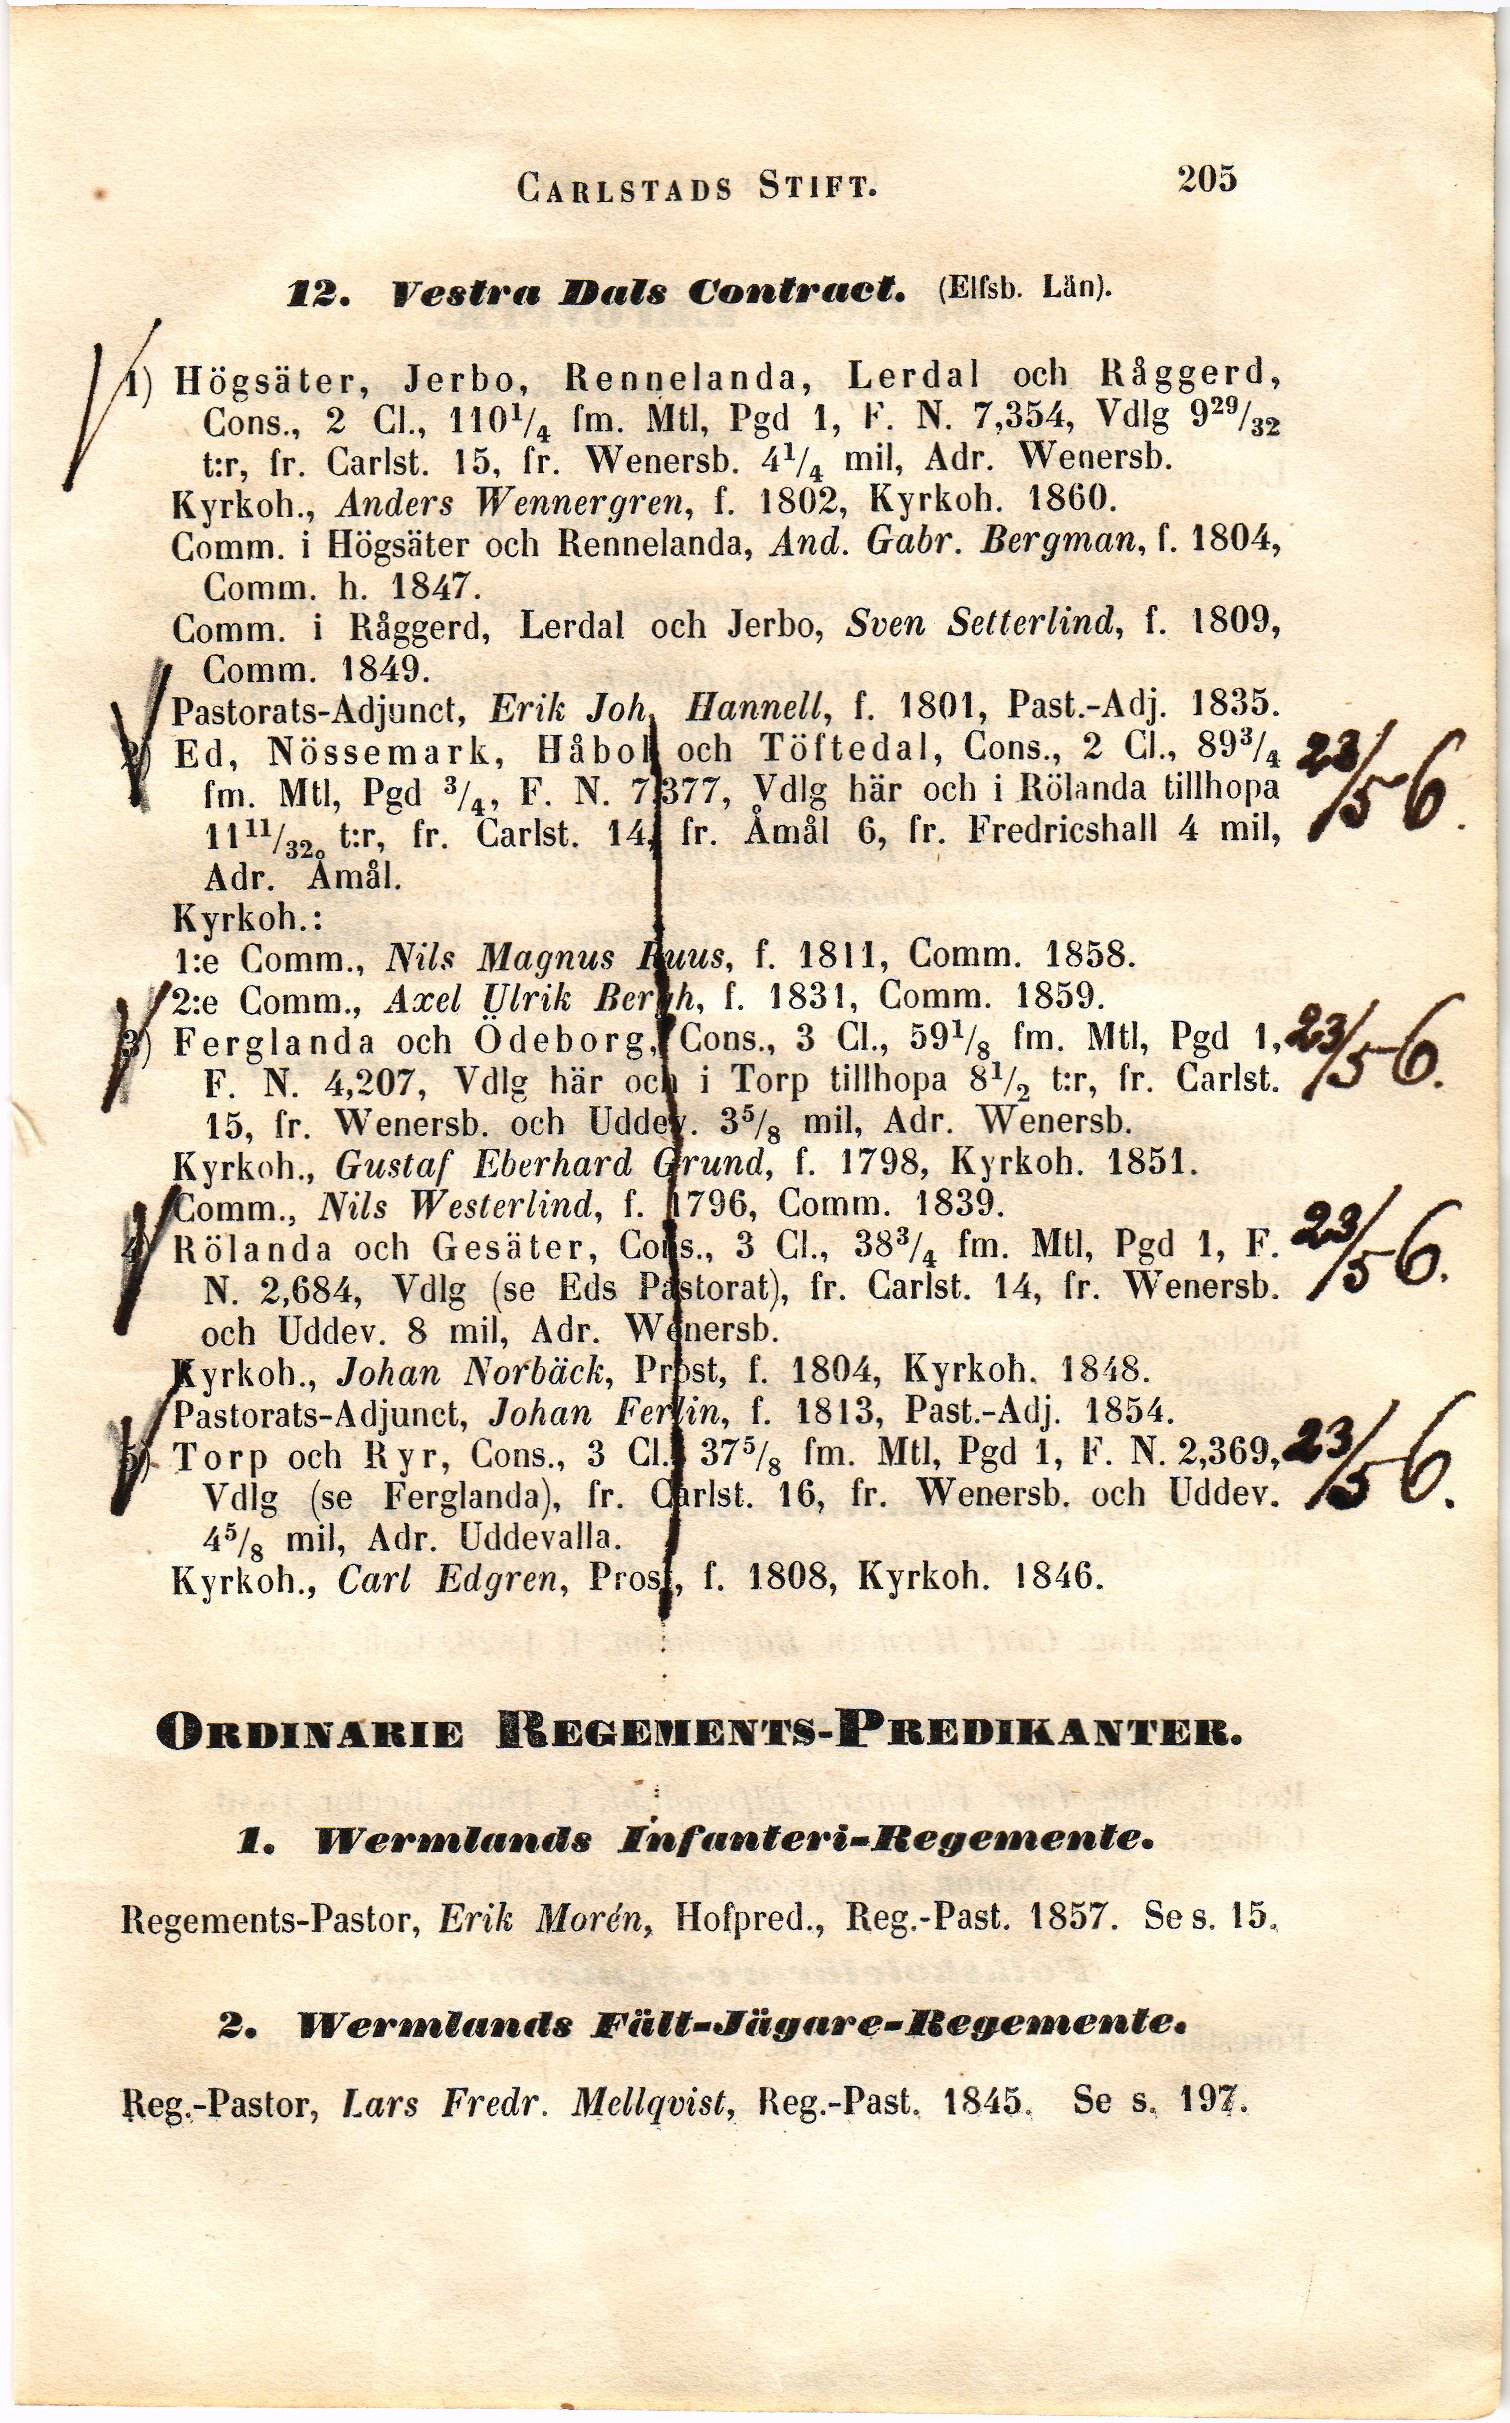 CARLSTADS STIFT. 205
12. Vestra Dals Contract. (Elfsb. Län).
1) Högsäter, Jerbo, Rennelanda, Lerdal och Råggerd,
Cons., 2 Cl., 110¹/₄ fm. Mtl, Pgd 1, F. N. 7,354, Vdlg 9²⁹/₃₂
t:r, fr. Carlst. 15, fr. Wenersb. 4¹/₄ mil, Adr. Wenersb.
Kyrkoh., Anders Wennergren, f. 1802, Kyrkoh. 1860.
Comm. i Högsäter och Rennelanda, And. Gabr. Bergman, f. 1804,
Comm. h. 1847.
Comm. i Råggerd, Lerdal och Jerbo, Sven Setterlind, f. 1809,
Comm. 1849.
Pastorats-Adjunct, Erik Joh. Hannell, f. 1801, Past.-Adj. 1835.
2) Ed, Nössemark, Håbol och Töftedal, Cons., 2 Cl., 89³/₄ 23/56.
fm. Mtl, Pgd ³/₄, F. N. 7,377, Vdlg här och i Rölanda tillhopa
11¹¹/₃₂ t:r, fr. Carlst. 14, fr. Åmål 6, fr. Fredricshall 4 mil,
Adr. Åmål.
Kyrkoh.:
1:e Comm., Nils Magnus Ruus, f. 1811, Comm. 1858.
2:e Comm., Axel Ulrik Bergh, f. 1831, Comm. 1859.
3) Ferglanda och Ödeborg, Cons., 3 Cl., 59¹/₈ fm. Mtl, Pgd 1, 23/56.
F. N. 4,207, Vdlg här och i Torp tillhopa 8¹/₂ t:r, fr. Carlst.
15, fr. Wenersb. och Uddev. 3⁵/₈ mil, Adr. Wenersb.
Kyrkoh., Gustaf Eberhard Grund, f. 1798, Kyrkoh. 1851.
Comm., Nils Westerlind, f. 1796, Comm. 1839.
4) Rölanda och Gesäter, Cons., 3 Cl., 38³/₄ fm. Mtl, Pgd 1, F. 23/56.
N. 2,684, Vdlg (se Eds Pastorat), fr. Carlst. 14, fr. Wenersb.
och Uddev. 8 mil, Adr. Wenersb.
Kyrkoh., Johan Norbäck, Prost, f. 1804, Kyrkoh. 1848.
Pastorats-Adjunct, Johan Ferlin, f. 1813, Past.-Adj. 1854.
5) Torp och Ryr, Cons., 3 Cl., 37⁵/₈ fm. Mtl, Pgd 1, F. N. 2,369, 23/56.
Vdlg (se Ferglanda), fr. Carlst. 16, fr. Wenersb. och Uddev.
4⁵/₈ mil, Adr. Uddevalla.
Kyrkoh., Carl Edgren, Prost, f. 1808, Kyrkoh. 1846.
ORDINARIE REGEMENTS-PREDIKANTER.
1. Wermlands Infanteri-Regemente.
Regements-Pastor, Erik Morén, Hofpred., Reg.-Past. 1857. Se s. 15.
2. Wermlands Fält-Jägare-Regemente.
Reg.-Pastor, Lars Fredr. Mellqvist, Reg.-Past. 1845. Se s. 197.